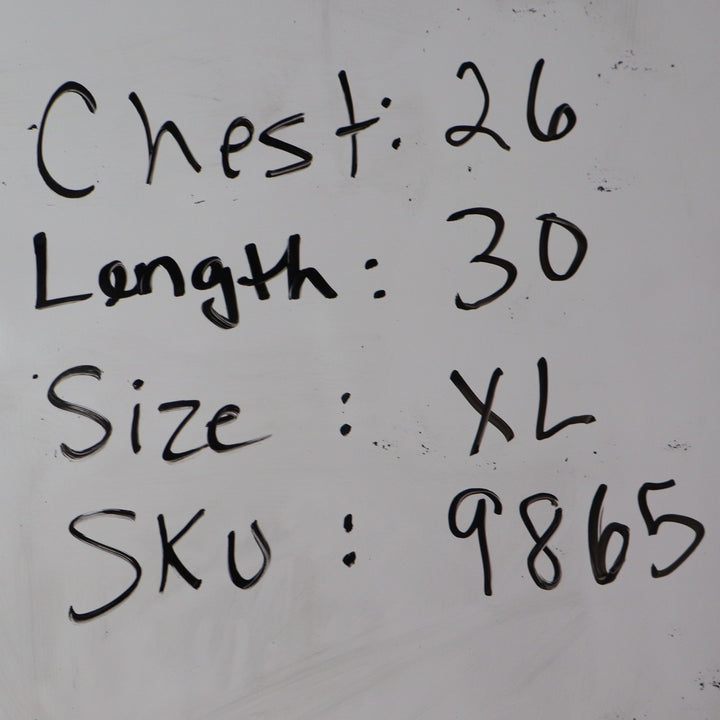 Chest: 26
Length: 30
Size: XL
SKU: 9865